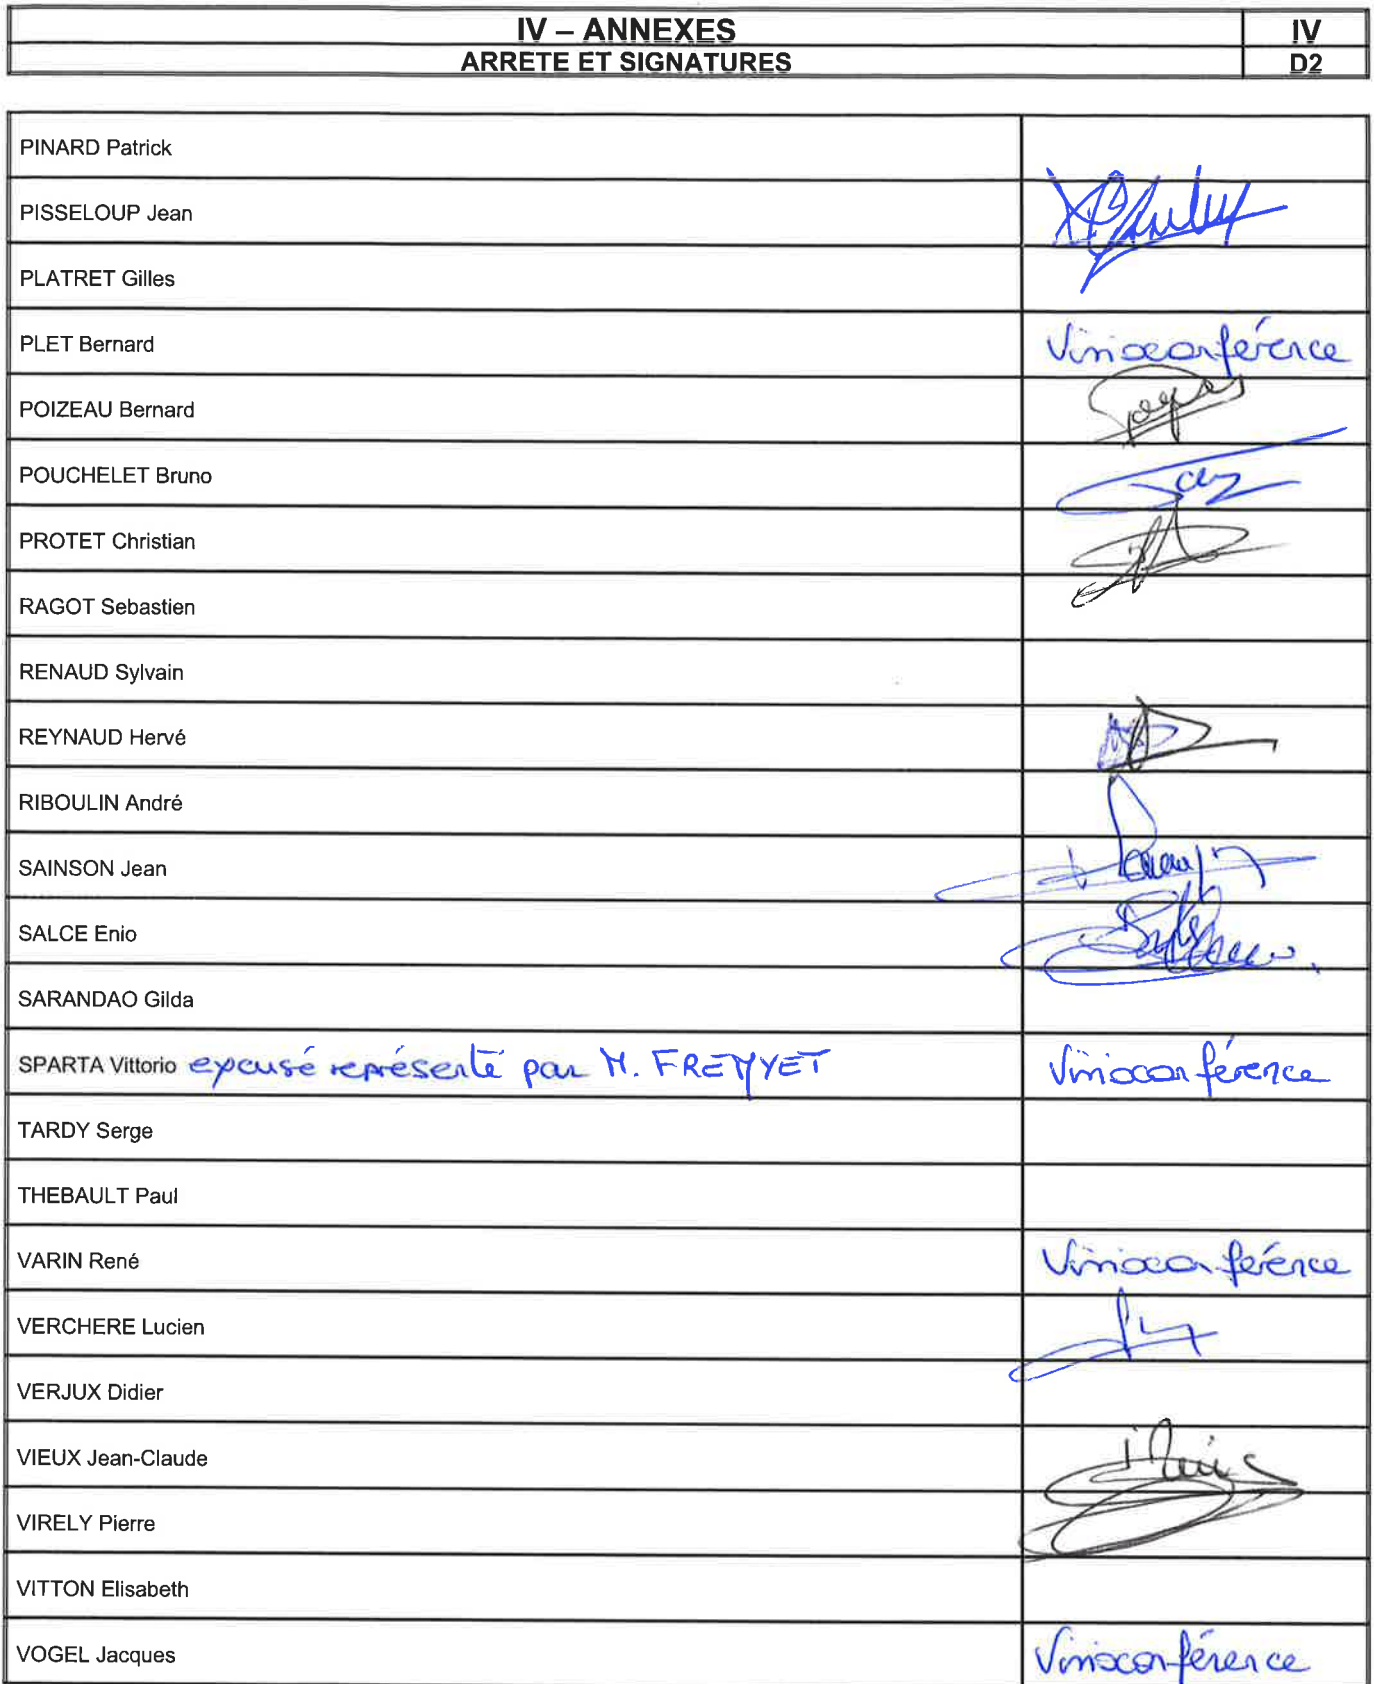 IV – ANNEXES
IV
ARRETE ET SIGNATURES
D2
PINARD Patrick
PISSELOUP Jean
PLATRET Gilles
PLET Bernard
Visioconférence
POIZEAU Bernard
POUCHELET Bruno
PROTET Christian
RAGOT Sebastien
RENAUD Sylvain
REYNAUD Hervé
RIBOULIN André
SAINSON Jean
SALCE Enio
SARANDAO Gilda
SPARTA Vittorio excusé représenté par M. FREMYET
Visioconférence
TARDY Serge
THEBAULT Paul
VARIN René
Visioconférence
VERCHERE Lucien
VERJUX Didier
VIEUX Jean-Claude
VIRELY Pierre
VITTON Elisabeth
VOGEL Jacques
Visioconférence